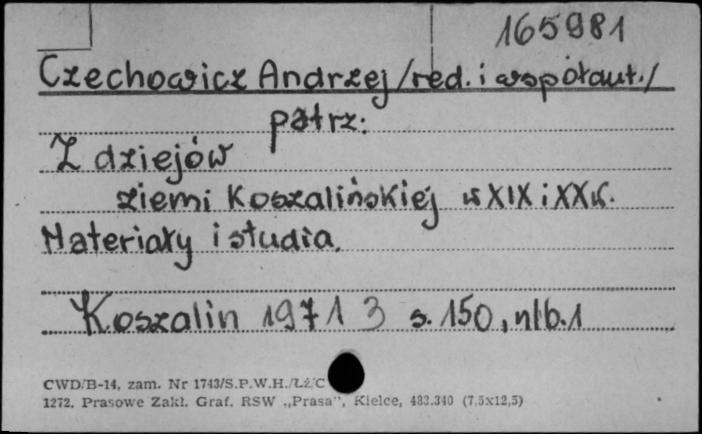 165981
Czechowicz Andrzej /red. i współaut./
patrz:
Z dziejów
ziemi Koszalińskiej w XIX i XX w.
Materiały i studia.
Koszalin 1971 3 s. 150, nlb. 1
CWD/B-14, zam. Nr 1743/S.P.W.H./Łż/C
1272. Prasowe Zakł. Graf. RSW „Prasa", Kielce, 483.340 (7,5x12,5)